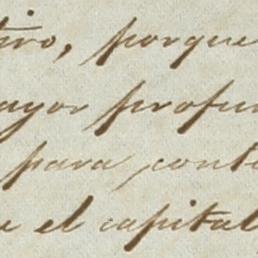 tiro, porque
ayor profun
para conta
e el capital